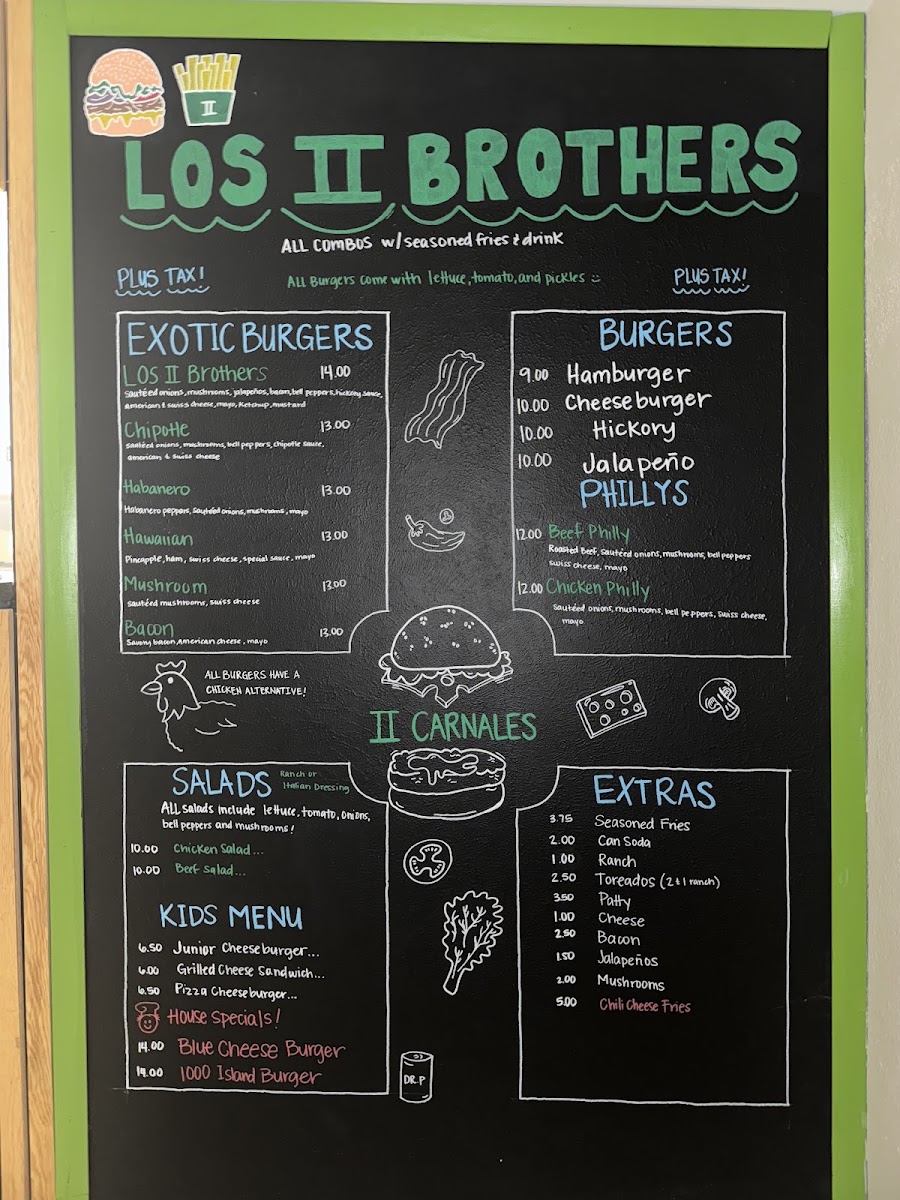 II
LOS II BROTHERS
ALL COMBOS w/seasoned fries & drink
PLUS TAX!
All Burgers come with lettuce, tomato, and pickles
PLUS TAX!
EXOTIC BURGERS
LOS II Brothers 14.00
Sautéed onions, mushrooms, jalapeños, bacon, bell peppers, hickory sauce,
american & swiss cheese, mayo, ketchup, mustard
Chipotle 13.00
sautéed onions, mushrooms, bell peppers, chipotle sauce,
american & swiss cheese
Habanero 13.00
Habanero peppers, sautéed onions, mushrooms, mayo
Hawaiian 13.00
Pineapple, ham, swiss cheese, special sauce, mayo
Mushroom 13.00
sautéed mushrooms, swiss cheese
Bacon 13.00
Savory bacon, American cheese, mayo
BURGERS
9.00 Hamburger
10.00 Cheeseburger
10.00 Hickory
10.00 Jalapeño
PHILLYS
12.00 Beef Philly
Roasted Beef, sautéed onions, mushrooms, bell peppers
swiss cheese, mayo
12.00 Chicken Philly
Sautéed onions, mushrooms, bell peppers, swiss cheese,
mayo
ALL BURGERS HAVE A
CHICKEN ALTERNATIVE!
II CARNALES
SALADS
Ranch or
Italian Dressing
All salads include lettuce, tomato, onions,
bell peppers and mushrooms!
10.00 Chicken Salad...
10.00 Beef Salad...
KIDS MENU
6.50 Junior Cheeseburger...
6.00 Grilled Cheese Sandwich...
6.50 Pizza Cheeseburger...
House Specials!
14.00 Blue Cheese Burger
14.00 1000 Island Burger
EXTRAS
3.75 Seasoned Fries
2.00 Can Soda
1.00 Ranch
2.50 Toreados (2 & 1 ranch)
3.50 Patty
1.00 Cheese
2.50 Bacon
1.50 Jalapeños
2.00 Mushrooms
5.00 Chili Cheese Fries
DR. P